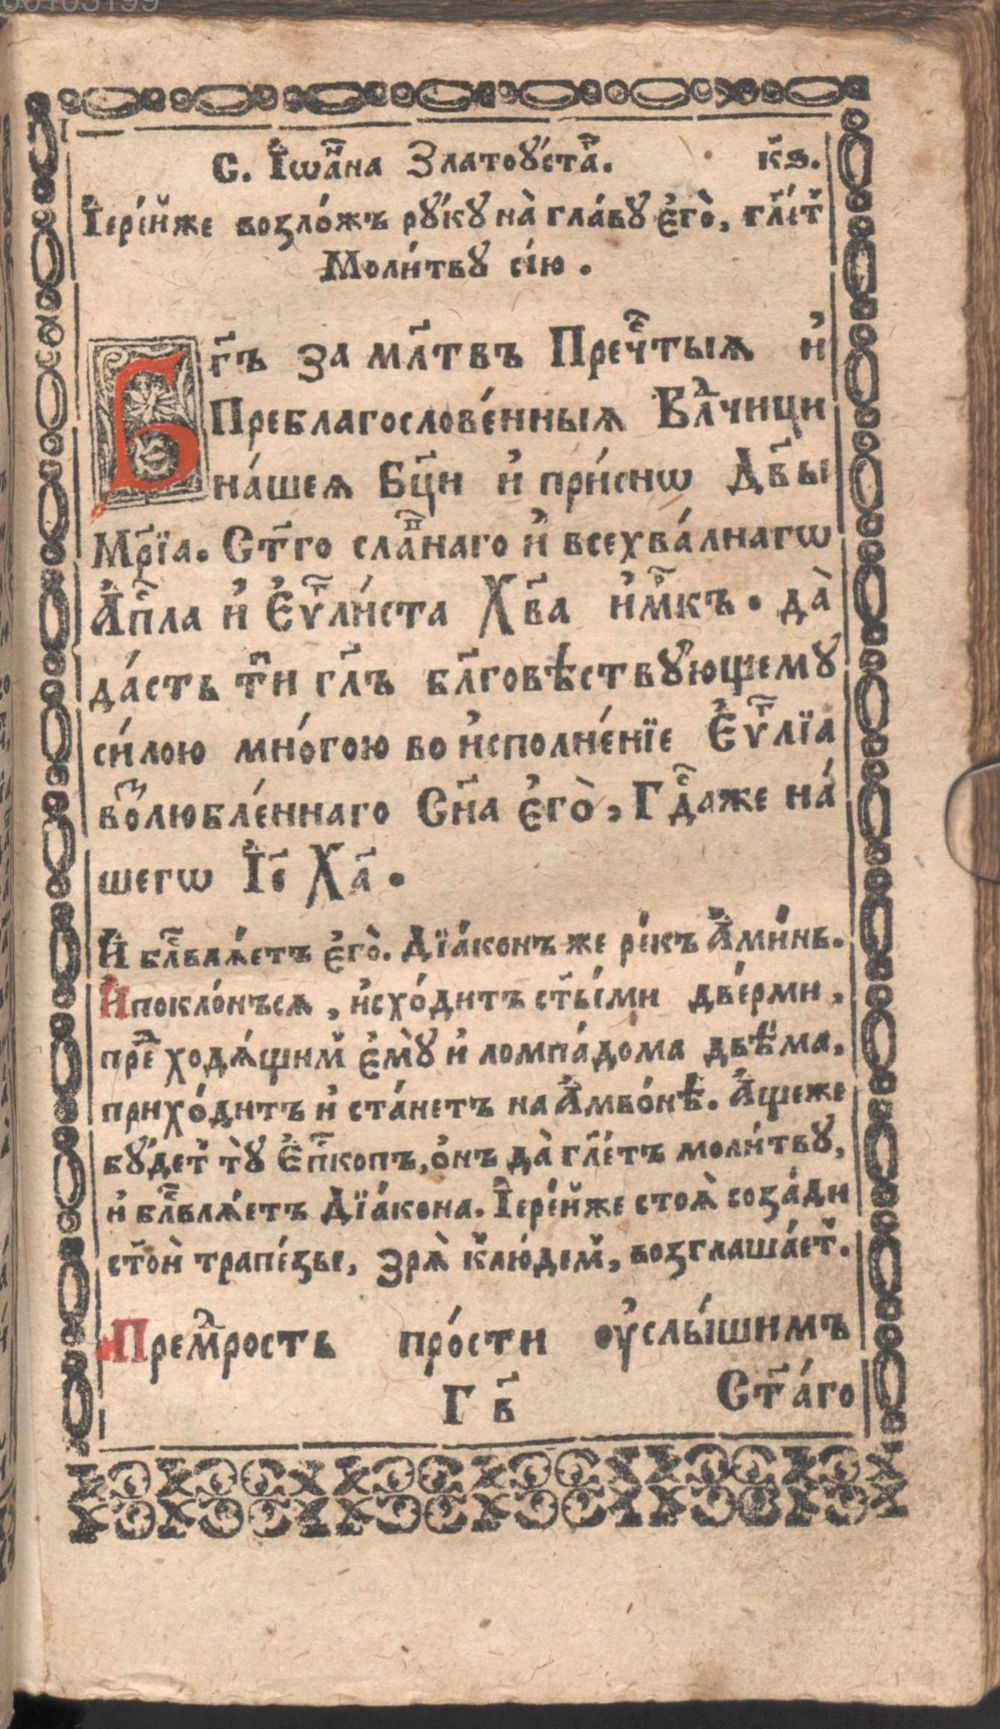 00103199
С. І҆ѡа́нна Златоу́стаⷢ. к҃ѕ.
І҆ере́йже возло́жъ рꙋ́кꙋ на̀ гла́вꙋ є҆го̀, гл҃етⸯ
Моли́твꙋ сі́ю.
Бг҃ъ за мл҃твъ Преч҃тыѧ и҆
Преблагослове́нныѧ Влⷣчици
на́шеѧ Бц҃и и҆ при́снѡ Дв҃ы
Мр҃їа. Ст҃го сла́внаго и҆ всехва́лнагѡ
А҆п҃ла и҆ Є҆ѵⷢли́ста Хв҃а и҆м҃къ. да̀
да́сть т҃и гл҃ъ бл҃говѣствꙋ́ющемꙋ
си́лою мно́гою во и҆сполне́нїе Є҆ѵⷢлїа
воⷥлюбле́ннаго Сн҃а є҆го̀, Гдⷭ҇аже на́
шегѡ І҆с҃ Ха҃.
И҆ блⷭвлѧ́етъ є҆го̀. Дїа́конъ же ре́къ А҆ми́нь.
И҆покло́нъсѧ, и҆схо́дитъ ст҃ы́ми две́рми,
преⷣ ходѧ́щимⸯ є҆мꙋ̀ и҆ ломпа́дома двѣ́ма,
прихо́дитъ и҆ ста́нетъ на А҆мво́нѣ. А҆́щеже
бꙋ́детⸯ тꙋ̀ Є҆пⷭкопъ, о҆́нъ да̀ гл҃етъ моли́твꙋ,
и҆ блⷭвлѧ́етъ Дїа́кона. І҆ере́йже стоѧ̀ соза́ди
ст҃о́и трапе́зые, зрѧ̀ кⸯлю́демⸯ, возглаша́етⸯ.
Премⷣрость про́сти ᲂу҆слы́шимъ
Г в҃ Ст҃а́го